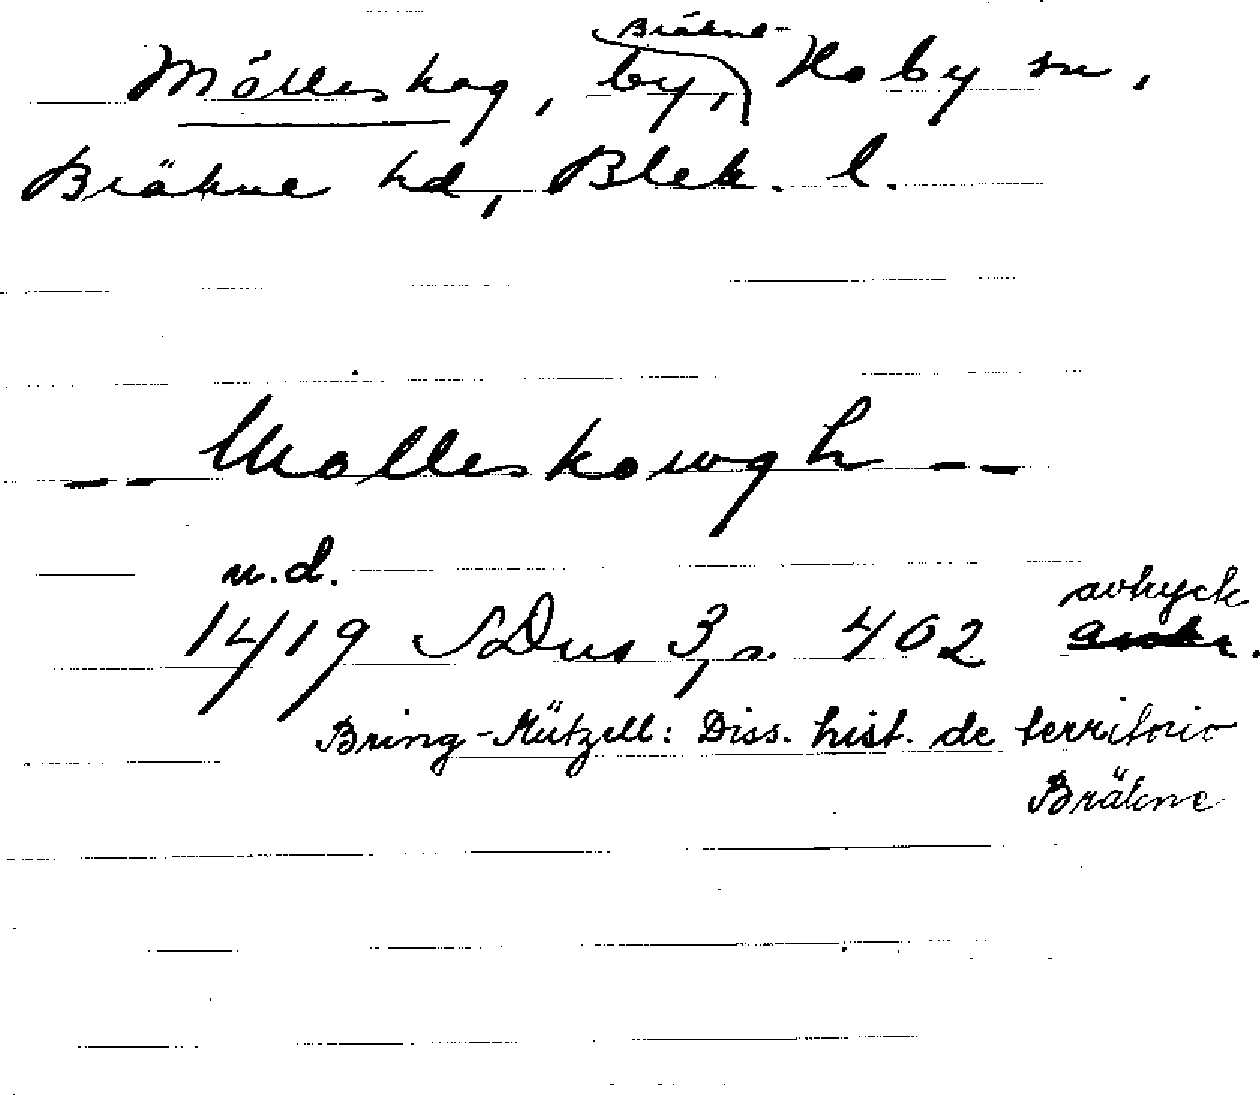 Bräkne-
Mölleskog, by, Hoby sn,
Bräkne hd, Blek. l.
-- Molleskowgh --
u.d.
avtryck
1419 SDns 3, s. 402
Bring-Mützell: Diss. hist. de territorio
Bräkne